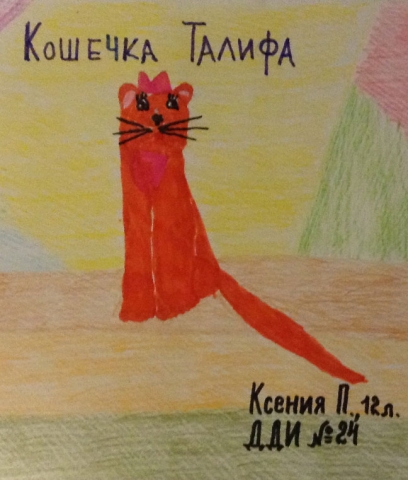 Кошечка Талифа
Ксения П., 12л.
ДДИ №24